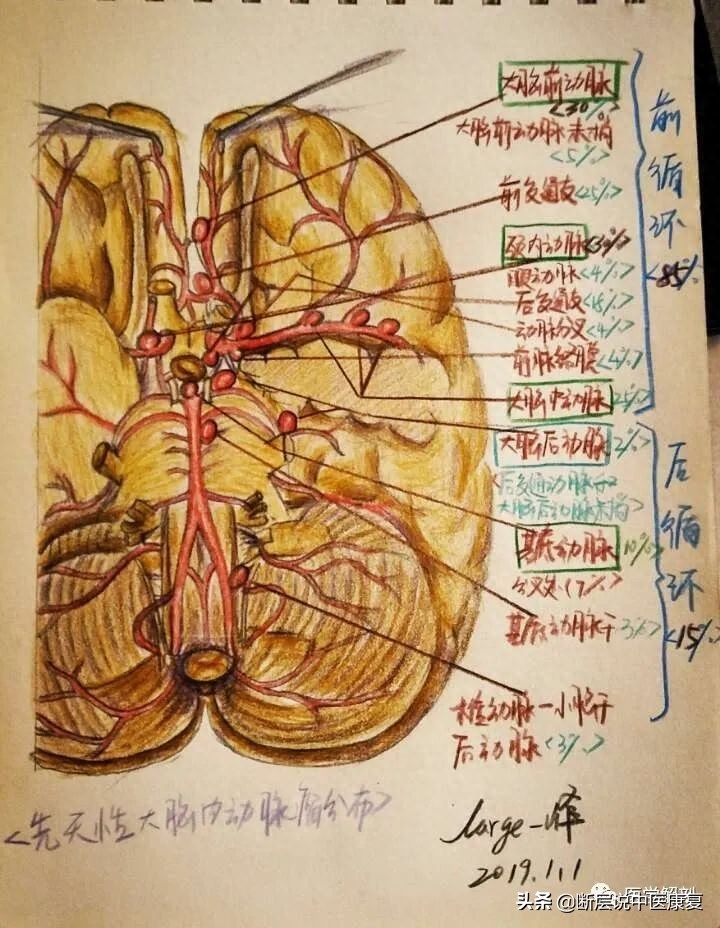 大脑前动脉
<30%>
大脑前动脉末梢
<5%>
前交通支<25%>
颈内动脉<3 %>
眼动脉<4%>
后交通支<18%>
动脉分叉<4%>
前脉络膜<4%>
大脑中动脉 25%>
大脑后动脉 2%>
<后交通动脉和
大脑后动脉末梢>
基底动脉 10%>
分叉(7%>
基底动脉干 3%>
椎动脉—小脑下
后动脉<3%>
前循环
<85%>
后循环
<15%>
<先天性大脑内动脉瘤分布>
large-峰
2019.1.1
医学解剖
头条 @断层说中医康复